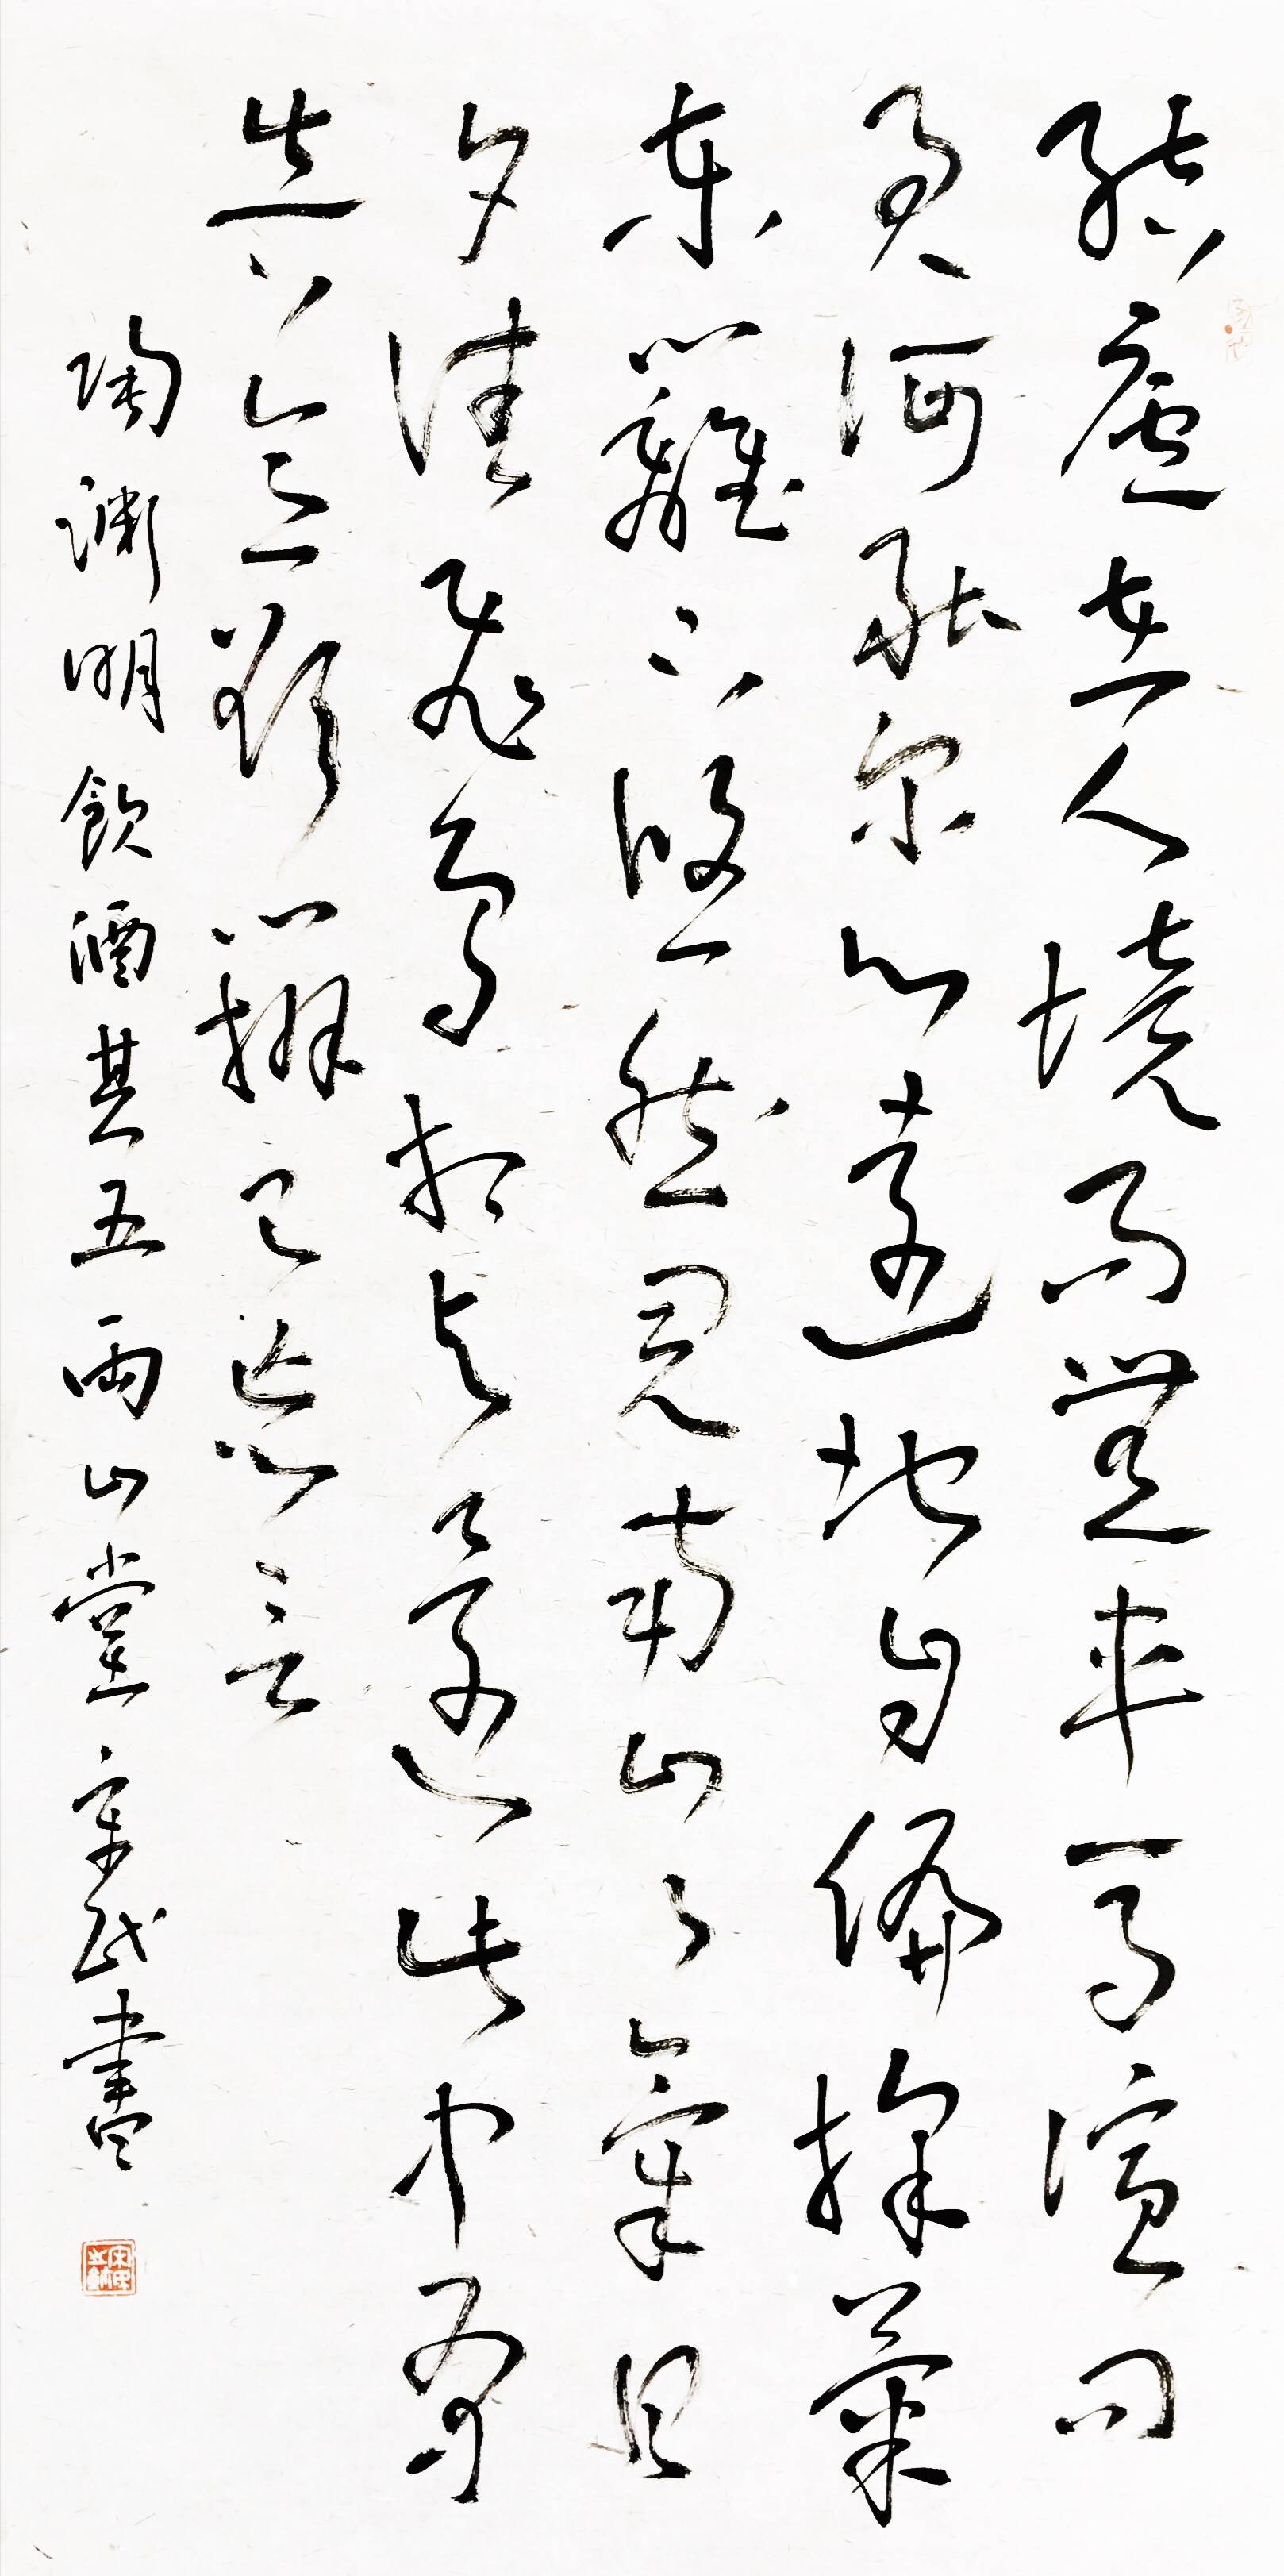 結廬在人境而無車馬喧問
君何能尔心遠地自偏採菊
東籬下悠然見南山々氣日
夕佳飛鳥相與還此中有
真意欲辨已忘言
陶淵明飲酒其五兩山堂民書